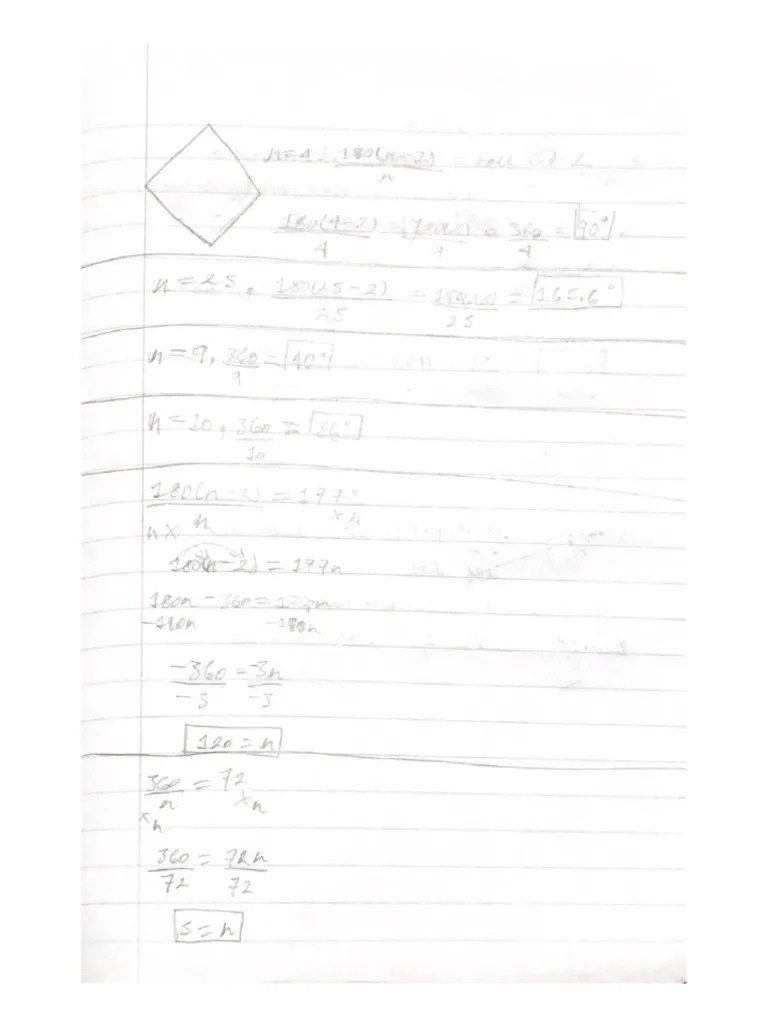 n=4, 180(n-2)/n = each int ∠
180(4-2)/4 = = 360/4 = 90°
n=25, 180(25-2)/25 = 180(23)/25 = 165.6°
n=9, 360/9 = 40°
n=10, 360/10 = 36°
180(n-2)/n = 177°
nx xn
180(n-2) = 177n
180n - 360 = 177n
-180n -180n
-360/-3 = -3n/-3
120 = n
360/n = 72
xn xn
360/72 = 72n/72
5 = n